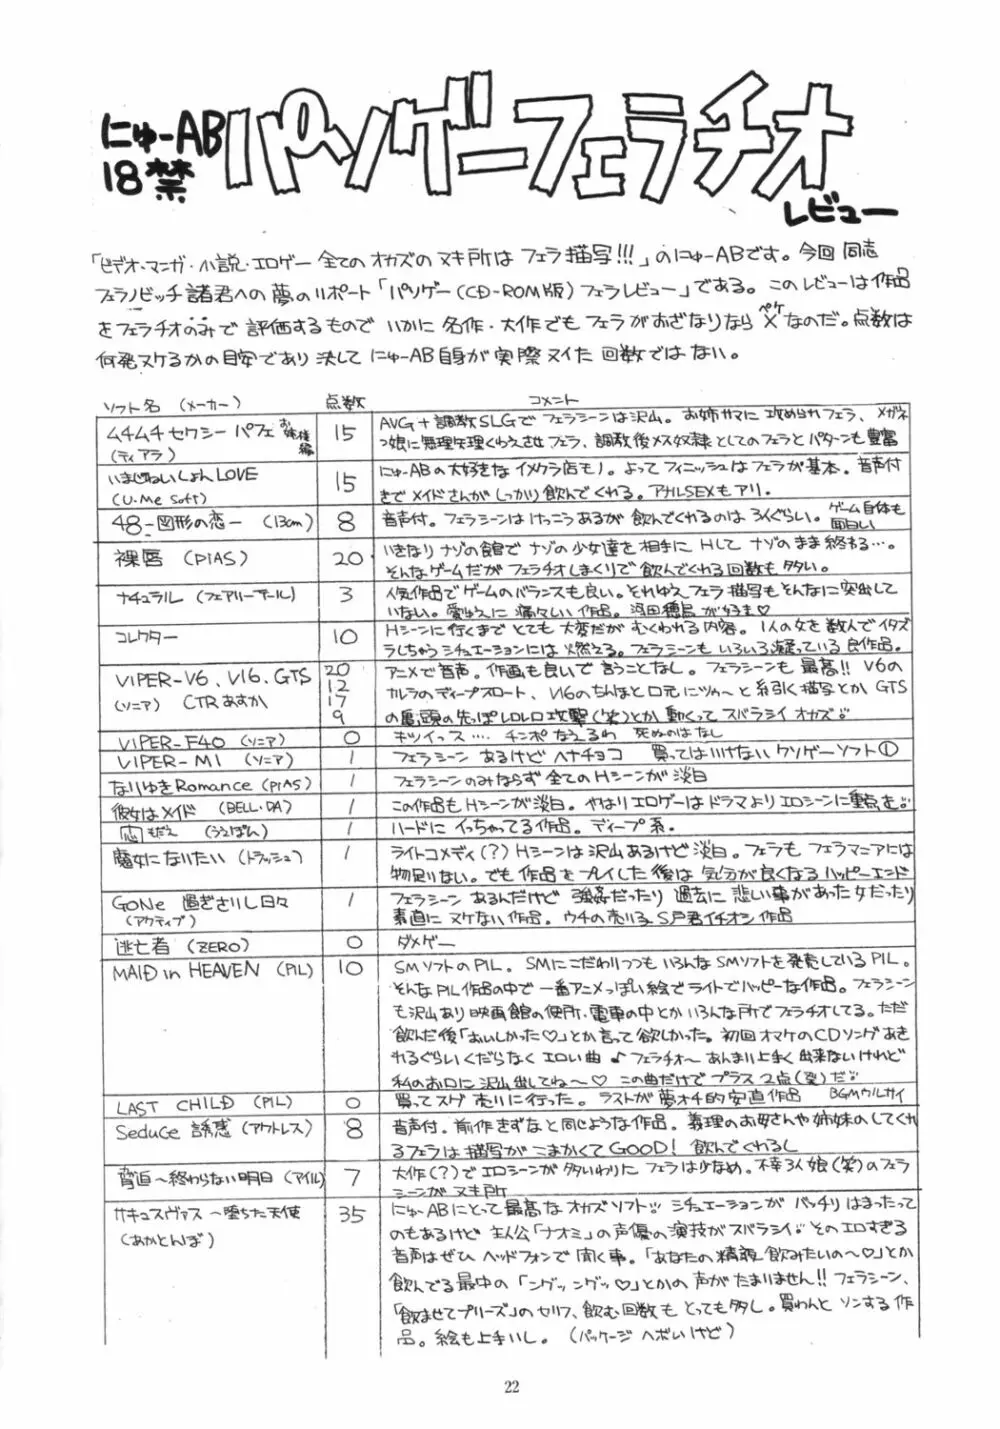 にゅーAB
18禁
パソゲーフェラチオ
レビュー
「ビデオ・マンガ・小説・エロゲー 全てのオカズのヌキ所は フェラ描写!!!」のにゅーABです。今回 同志
フェラノビッチ諸君への夢のリポート「パソゲー(CD-ROM版)フェラレビュー」である。このレビューは作品
をフェラチオのみで評価するもので いかに 名作・大作でも フェラがおざなりなら ペケ ×なのだ。点数は
何発ヌケるかの目安であり 決して にゅーAB自身が 実際 ヌイた 回数ではない。
ソフト名 (メーカー) 点数 コメント
ムチムチセクシーパフェ お姉様編 (ティアラ) 15 AVG+調教SLGで フェラシーンは沢山。お姉サマに攻められフェラ、メガネ
っ娘に無理矢理くわえさせフェラ、調教後メス奴隷としてのフェラとパターンも豊富
いまじねいしょんLOVE (U-Me Soft) 15 にゅーABの大好きな イメクラ店モノ。よって フィニッシュは フェラが基本。音声付
きでメイドさんが しっかり飲んでくれる。アナルSEXもアリ.
48-図形の恋- (13cm) 8 音声付。フェラシーンはけっこうあるが 飲んでくれるのは 3人ぐらい。ゲーム自体も
面白い
裸唇 (PIAS) 20 いきなり ナゾの館で ナゾの少女達を 相手に Hして ナゾのまま 終わる…。
そんなゲームだが フェラチオしまくりで 飲んでくれる回数も多い。
ナチュラル (フェアリーテール) 3 人気作品でゲームのバランスも良い。それゆえ フェラ描写もそんなに突出して
いない。愛ゆえに 痛々しい 作品。 が好き♡
コレクター 10 Hシーンに行くまで とても 大変だが むくわれる内容。1人の女を数人でイタズ
ラしちゃうシチュエーションには燃える。フェラシーンも いろいろ凝っている 良作品。
VIPER-V6、V16、GTS (ソニア) CTRあすか 20 12 17 9 アニメで音声。作画も良いで 言うことなし。フェラシーンも 最高!! V6の
カルラのディープスロート、V16のちんぽと口元にツゥ〜と糸引く描写とか GTS
の亀頭の先っぽレロレロ攻撃(笑)とか 動くって スバラシイ オカズ!!
VIPER-F40 (ソニア) 0 キツイっス…. チンポ なえるわ 死ぬのはなし
VIPER-M1 (ソニア) 1 フェラシーン あるけど ヘナチョコ 買ってはいけない クソゲーソフト①
なりゆきRomance (PIAS) 1 フェラシーンのみならず 全てのHシーンが 淡白
彼女はメイド (BELL-DA) 1 この作品も Hシーンが淡白。やはりエロゲーはドラマよりエロシーンに重点を!!
恋もだえ (うえぽん) 1 ハードに イっちゃってる 作品。ディープ系.
魔女になりたい (トラッシュ) 1 ライトコメディ(?)Hシーンは沢山あるけど 淡白。フェラも フェラマニアには
物足りない。でも 作品を プレイした 後は 気分が 良くなる ハッピーエンド
GONe 過ぎさりし日々 (アクティブ) 1 フェラシーン あるんだけど 強姦だったり 過去に 悲しい事があった女だったり
素直に ヌケない 作品。ウチの売り子 S戸君イチオシ作品
逃亡者 (ZERO) 0 ダメゲー
MAID in HEAVEN (PIL) 10 SMソフトのPIL。SMにこだわりつつも いろんなSMソフトを発売しているPIL。
そんな PIL作品の中で 一番アニメっぽい絵で ライトでハッピーな作品。フェラシーン
も沢山あり 映画館の便所・電車の中とか いろんな所でフェラチオしてる。ただ
飲んだ後「おいしかった♡」とか言って欲しかった。初回オマケのCDソングあき
れるぐらい くだらなく エロい曲 ♪フェラチオ〜 あんまり上手く 出来ないけれど
私のお口に沢山出してね〜♡ この曲だけで プラス2点(笑)だ!!
LAST CHILD (PIL) 0 買ってスグ 売りに行った。ラストが夢オチ的安直作品 BGMウルサイ
Seduce 誘惑 (アウトレス) 8 音声付。前作きずなと同じような作品。義理のお母さんや姉妹のしてくれ
るフェラは 描写が こまかくて GOOD! 飲んでくれるし
脅迫〜終わらない明日 (アイル) 7 大作(?)でエロシーンが多いわりに フェラは少なめ。不幸3人娘(笑)のフェラ
シーンが ヌキ所
サキュスヴァス〜堕ちた天使 (あかとんぼ) 35 にゅーABにとって最高な オカズソフト!! シチュエーションが バッチリ はまったって
のもあるけど 主人公「ナオミ」の声優の演技がスバラシイ!! そのエロすぎる
音声はぜひ ヘッドフォンで聞く事。「あなたの精液 飲みたいの〜♡」とか
飲んでる最中の「ングッ ングッ♡」とかの 声がたまりません!! フェラシーン、
「飲ませてプリーズ」のセリフ、飲む回数も とっても多し。買わんと ソンする 作
品。絵も上手いし。 (パッケージ ヘボいけど)
22